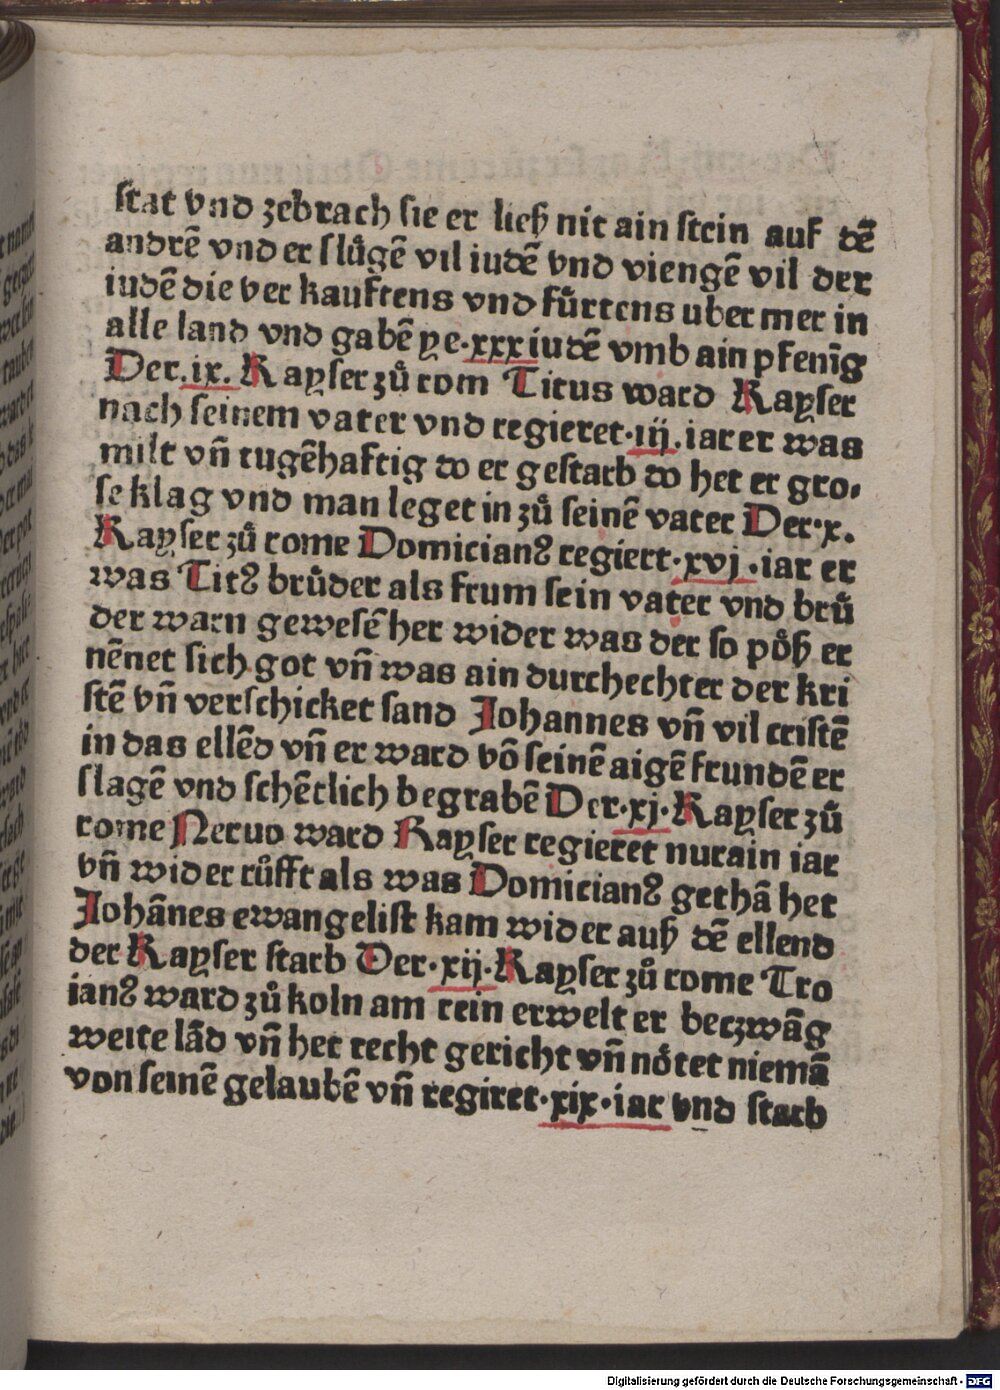 stat vnd zebrach sie er ließ nit ain stein auf dē
andrē vnd er slůgē vil iudē vnd viengē vil der
iudē die ver kauftens vnd fůrtens uber mer in
alle land vnd gabē ye·xxx iudē vmb ain pfenīg
Der.ix. Kayser zů rom Titus ward Kayser
nach seinem vater vnd regieret·iij.iar er was
milt vñ tugēhaftig do er gestarb do het er gro-
se klag vnd man leget in zů seinē vater Der·x.
Kayser zů rome Domicianꝰ regiert·xvj·iar er
was Titꝰ brůder als frum sein vater vnd brů
der warn gewesē her wider was der so pőß er
nēnet sich got vñ was ain durchechter der kri
stē vñ verschicket sand Johannes vñ vil cristē
in das ellēd vñ er ward vō seinē aigē frundē er
slagē vnd schētlich begrabē Der·xj·Kayser zů
rome Neruo ward Kayser regieret nurain iar
vñ wider růfft als was Domicianꝰ gethā het
Johānes ewangelist kam wider auß dē ellend
der Kayser starb Der·xij·Kayser zů rome Tro
ianꝰ ward zů koln am rein erwelt er beczwāg
weite lād vñ het recht gericht vñ nőtet niemā
von seinē gelaubē vñ regiret·xix·iar vnd starb
Digitalisierung gefördert durch die Deutsche Forschungsgemeinschaft - DFG